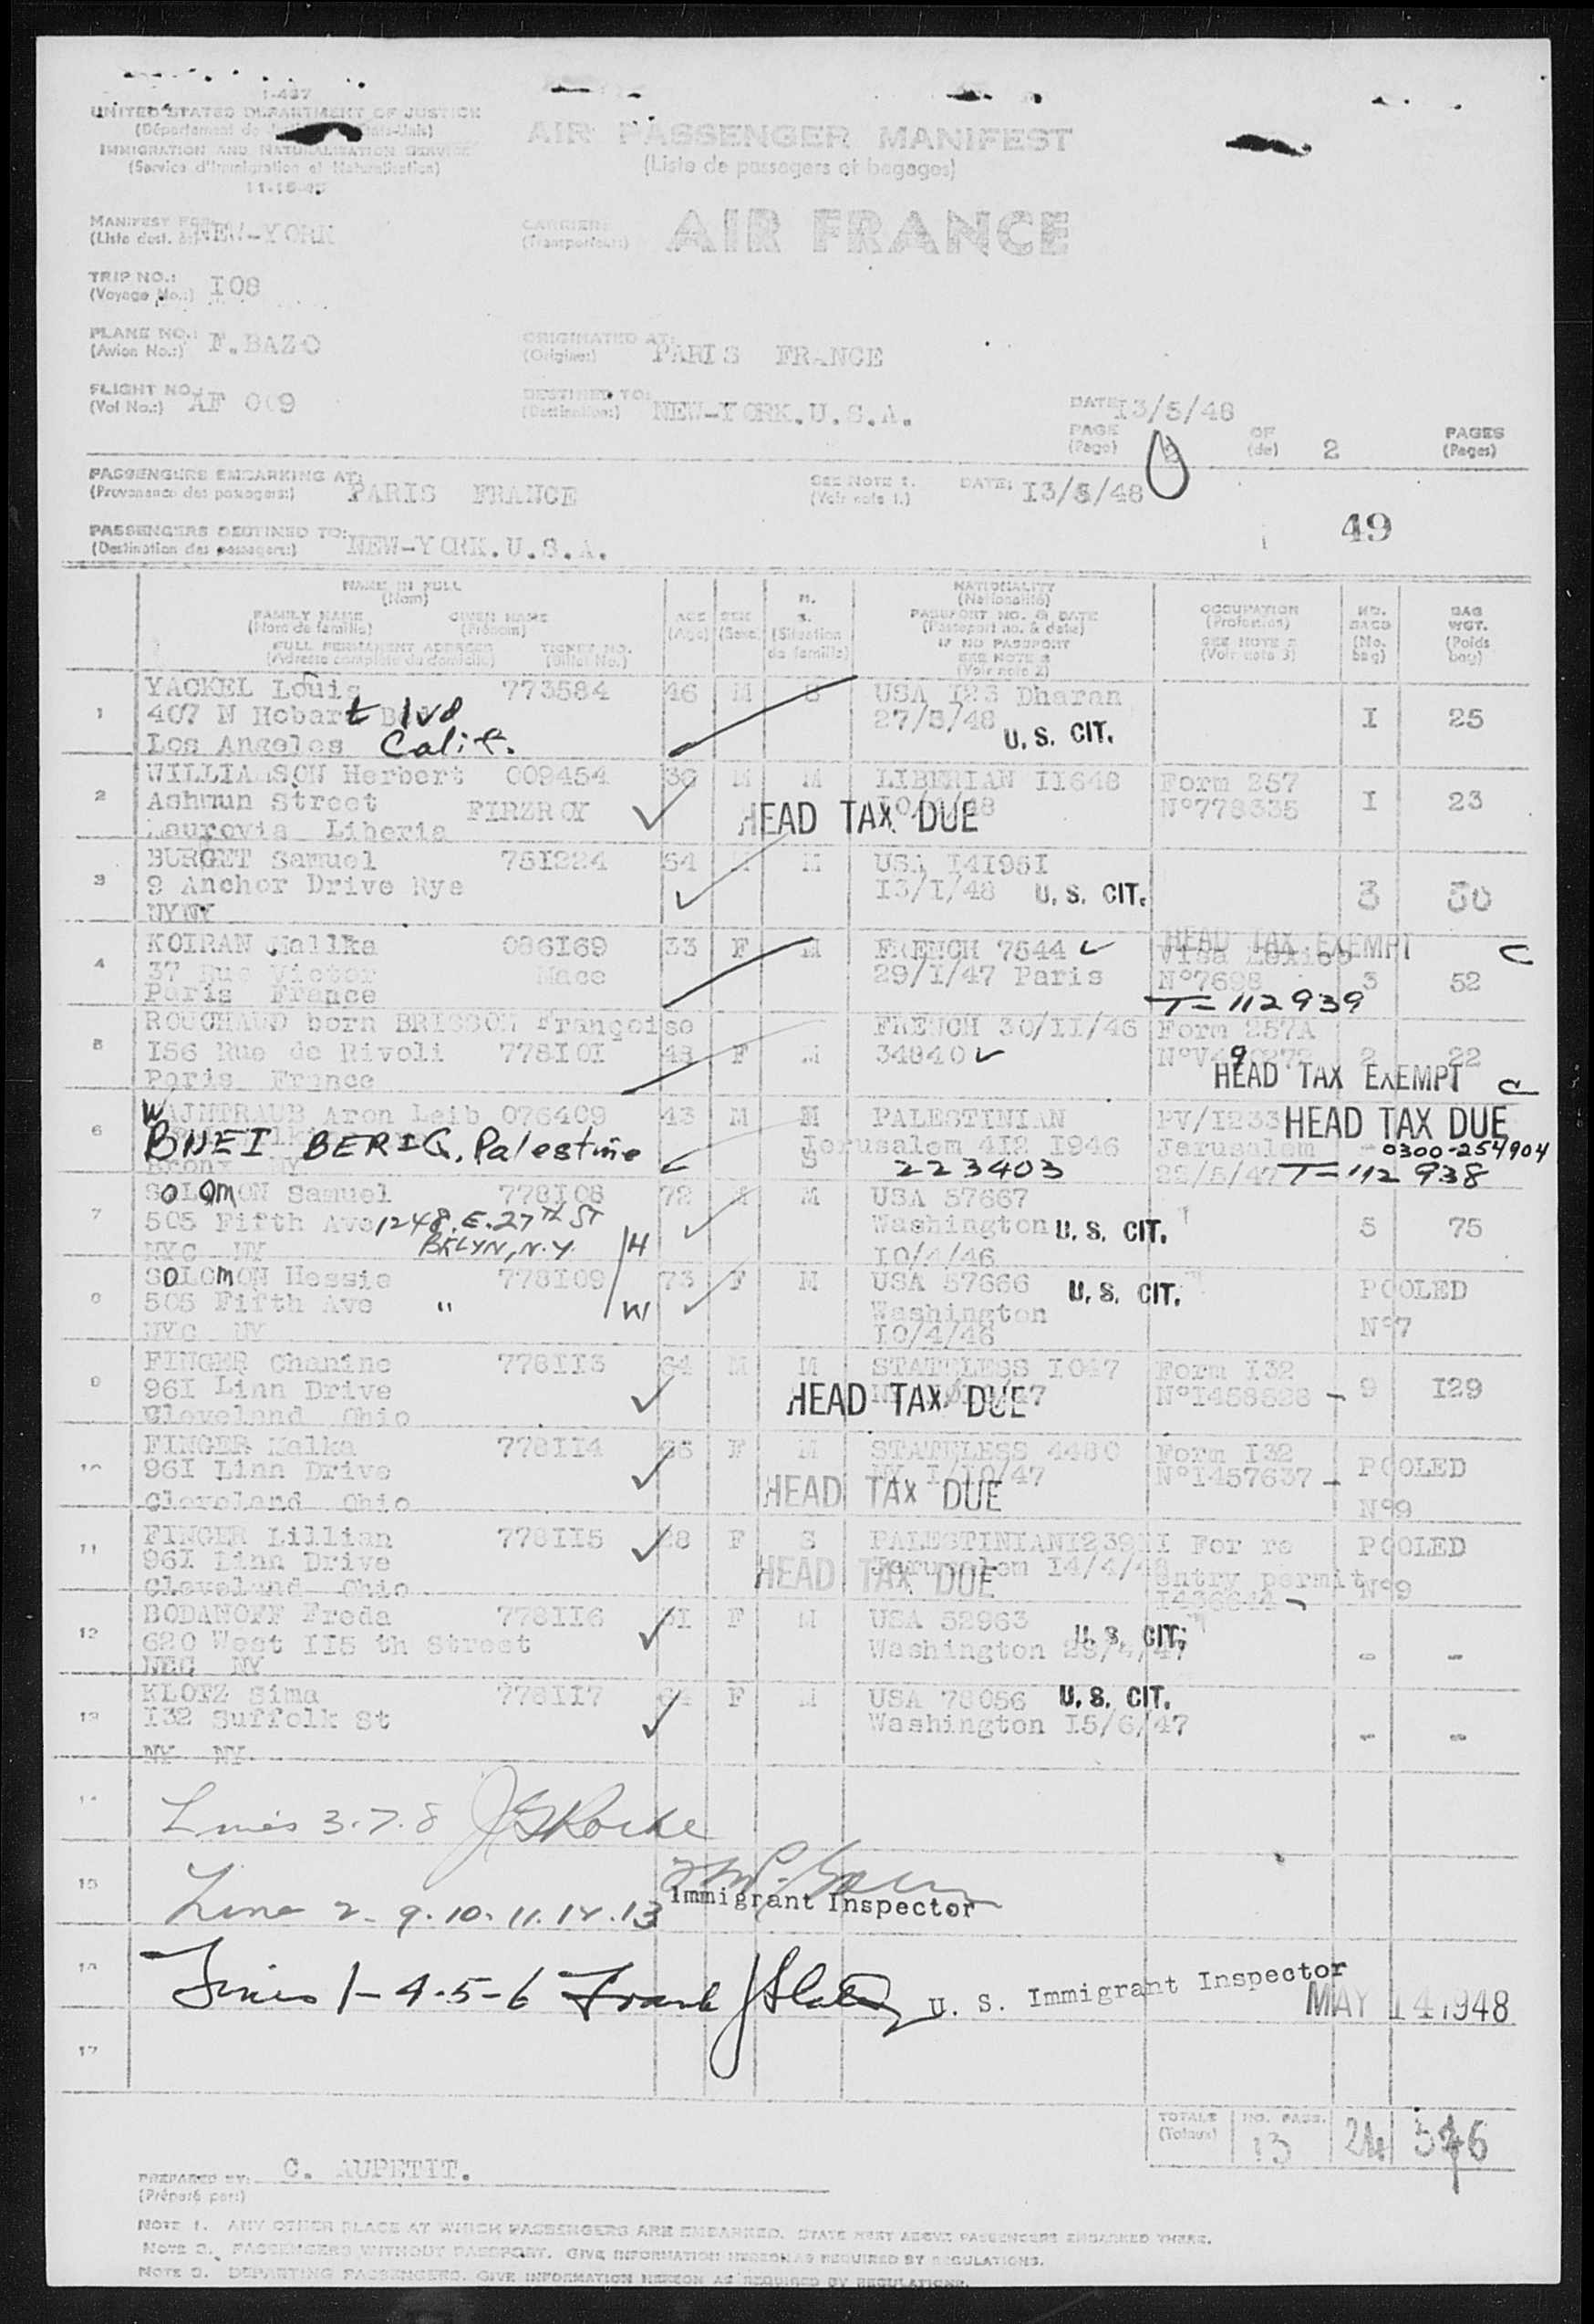 1-437
UNITED STATES DEPARTMENT OF JUSTICE
IMMIGRATION AND NATURALIZATION SERVICE
(Service d'Immigration et Naturalisation)
AIR PASSENGER MANIFEST
(Liste de passagers et bagages)
MANIFEST FOR: NEW-YORK
CARRIER:
(Transporteur:)
AIR FRANCE
TRIP NO.: I08
(Voyage No.:)
PLANE NO.: F.BAZO
(Avion No.:)
ORIGINATED AT: PARIS FRANCE
(Origine:)
FLIGHT NO.: AF 009
(Vol No.:)
DESTINED TO: NEW-YORK.U.S.A.
(Destination:)
DATE I3/5/48
PAGE OF 2 PAGES
(Page) (de) (Pages)
PASSENGERS EMBARKING AT: PARIS FRANCE
(Provenance des passagers:)
SEE NOTE 1. DATE: I3/5/48
(Voir note 1.)
49
PASSENGERS DESTINED TO: NEW-YORK.U.S.A.
(Destination des passagers:)
NAME IN FULL
(Nom)
FAMILY NAME GIVEN NAME
(Nom de famille) (Prénom)
FULL PERMANENT ADDRESS TICKET NO.
(Adresse complète du domicile) (Billet No.)
AGE
(Age)
SEX
(Sexe)
M.
S.
(Situation
de famille)
NATIONALITY
(Nationalité)
PASSPORT NO. & DATE
(Passeport no. & date)
IF NO PASSPORT
SEE NOTE 2
(Voir note 2)
OCCUPATION
(Profession)
SEE NOTE 3
(Voir note 3)
NO.
BAGS
(No.
bag)
BAG
WGT.
(Poids
bag)
1 YACKEL Louis 773584 46 M S USA I23 Dharan
407 N Hobart Blvd 27/3/48 U.S. CIT. I 25
Los Angeles Calif.
2 WILLIAMSON Herbert 009454 M M LIBERIAN II648 Form 257
Ashmun Street FIRZROY HEAD TAX DUE N°778335 I 23
Liberia
3 BURGET Samuel 75I224 54 M USA I4I95I
9 Anchor Drive Rye I3/I/48 U.S. CIT. 3 30
NYNY
4 KOIRAN Mallka 086I69 33 F M FRENCH 7544 HEAD TAX EXEMPT C
37 Rue Victor Mace 29/I/47 Paris Visa Mexico
Paris France N°7698 3 52
T-112939
5 ROUCHAUD born BRISSON Françoise FRENCH 30/II/46 Form 257A
I56 Rue de Rivoli 778I0I 48 F M 34840 2 22
Paris France HEAD TAX EXEMPT C
6 WAJNTRAUB Aron Leib 076409 43 M M PALESTINIAN PV/I233 HEAD TAX DUE
BNEI BERIQ, Palestine Jerusalem 4I2 I946 Jerusalem -0300-254904
Bronx NY S 223403 22/5/47 T-112938
7 SOLOMON Samuel 778I08 72 M USA 57667
505 Fifth Ave 1248.E.27TH ST Washington U.S. CIT. 5 75
NYC NY BKLYN, N.Y. H I0/4/46
8 SOLOMON Hessie 778I09 73 F M USA 57666 U.S. CIT. POOLED
505 Fifth Ave " W Washington
NYC NY I0/4/46 N°7
9 FINGER Chanine 778II3 64 M M STATELESS I047 Form I32
96I Linn Drive HEAD TAX DUE N°I458528 9 I29
Cleveland Ohio
10 FINGER Malka 778II4 F M STATELESS 4480 Form I32
96I Linn Drive NY I/I0/47 N°I457637 POOLED
Cleveland Ohio HEAD TAX DUE N°9
11 FINGER Lillian 778II5 28 F S PALESTINIAN For re POOLED
96I Linn Drive HEAD TAX DUE Jerusalem I4/4/48 entry permit N°9
Cleveland Ohio
12 BODANOFF Freda 778II6 F M USA 52963
620 West II5 th Street Washington U.S. CIT. - -
NEC NY
13 KLOTZ Sima 778II7 F M USA 78056 U.S. CIT.
I32 Suffolk St Washington I5/6/47 - -
NY NY
14 Lines 3.7.8
15 Line 2-9.10.11.12.13
Immigrant Inspector
16 Lines 1-4-5-6 Frank J U. S. Immigrant Inspector
MAY 14 1948
17
TOTALS NO. PASS.
(Totaux) 13 24
PREPARED BY: C. AUPETIT.
(Préparé par:)
NOTE 1. ANY OTHER PLACE AT WHICH PASSENGERS ARE EMBARKED. STATE NEXT ABOVE PASSENGERS EMBARKED THERE.
NOTE 2. PASSENGERS WITHOUT PASSPORT. GIVE INFORMATION HEREON AS REQUIRED BY REGULATIONS.
NOTE 3. DEPARTING PASSENGERS. GIVE INFORMATION HEREON AS REQUIRED BY REGULATIONS.